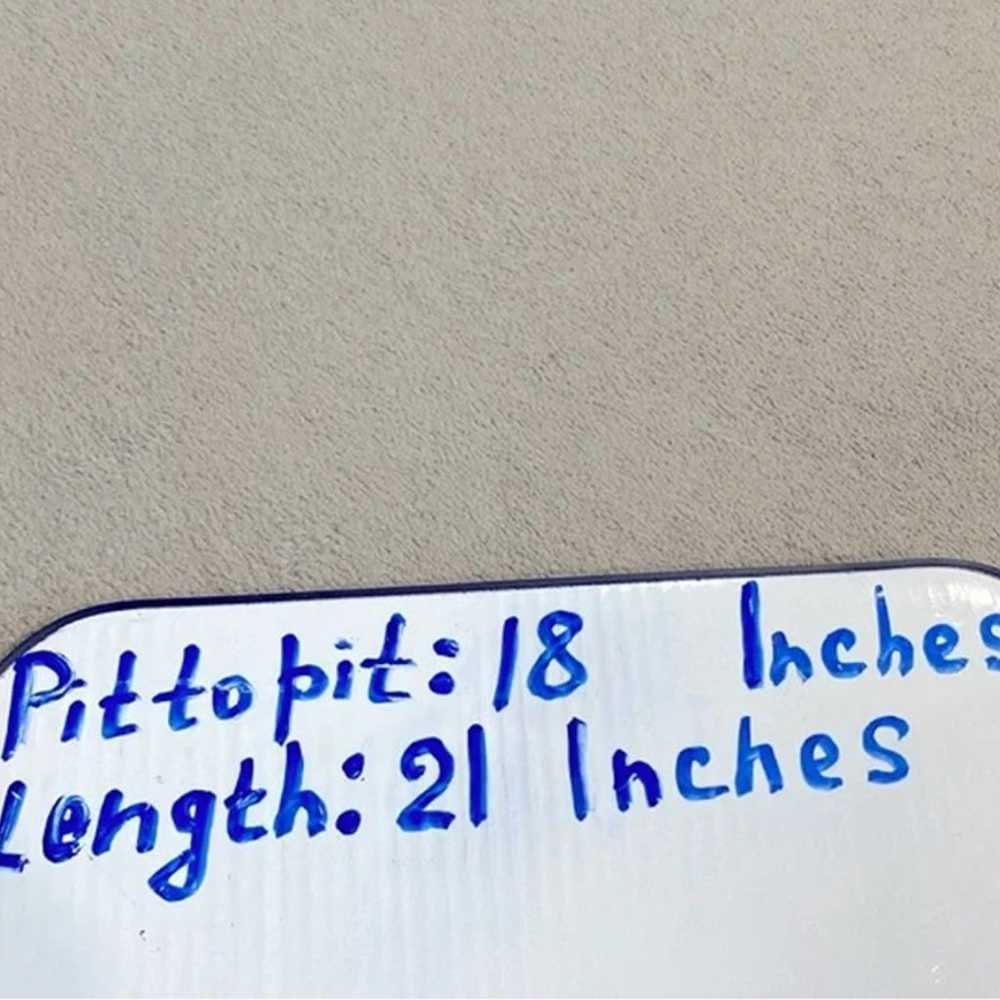 Pit to pit: 18 Inches
Length: 21 Inches